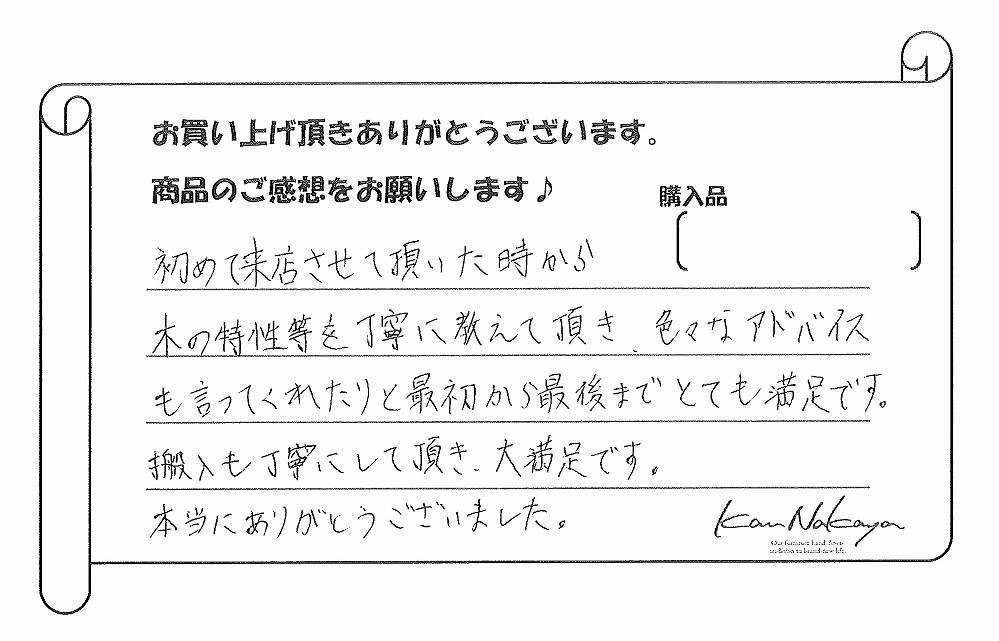 お買い上げ頂きありがとうございます。
商品のご感想をお願いします♪
購入品
初めて来店させて頂いた時から
木の特性等を丁寧に教えて頂き、色々なアドバイス
も言ってくれたりと最初から最後までとても満足です。
搬入も丁寧にして頂き、大満足です。
本当にありがとうございました。
Kan Nakaya
Our furniture hand down
tradition to brand-new life.